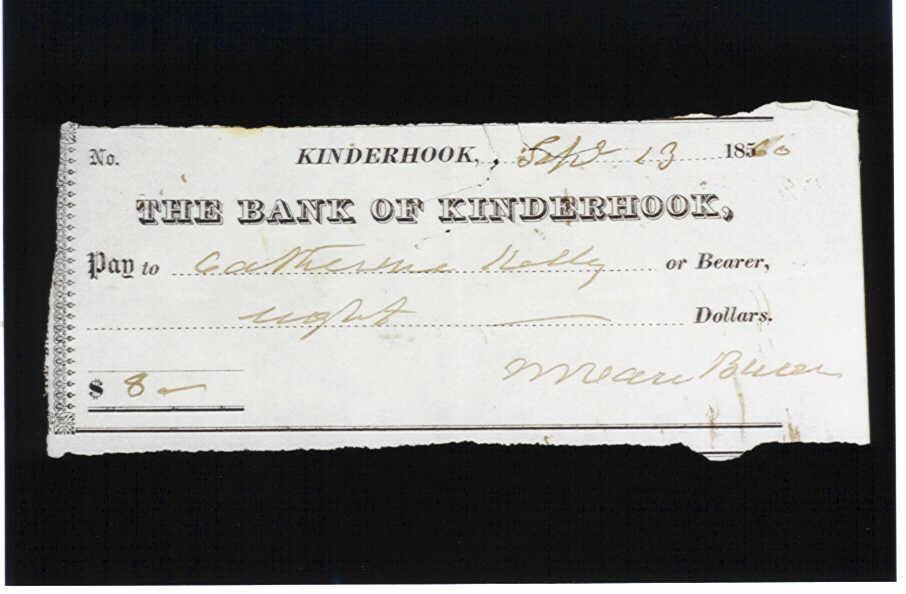 No. KINDERHOOK, Sept 13 1860
THE BANK OF KINDERHOOK,
Pay to Catherine Kelly or Bearer,
eight Dollars.
$ 8
M Van Buren